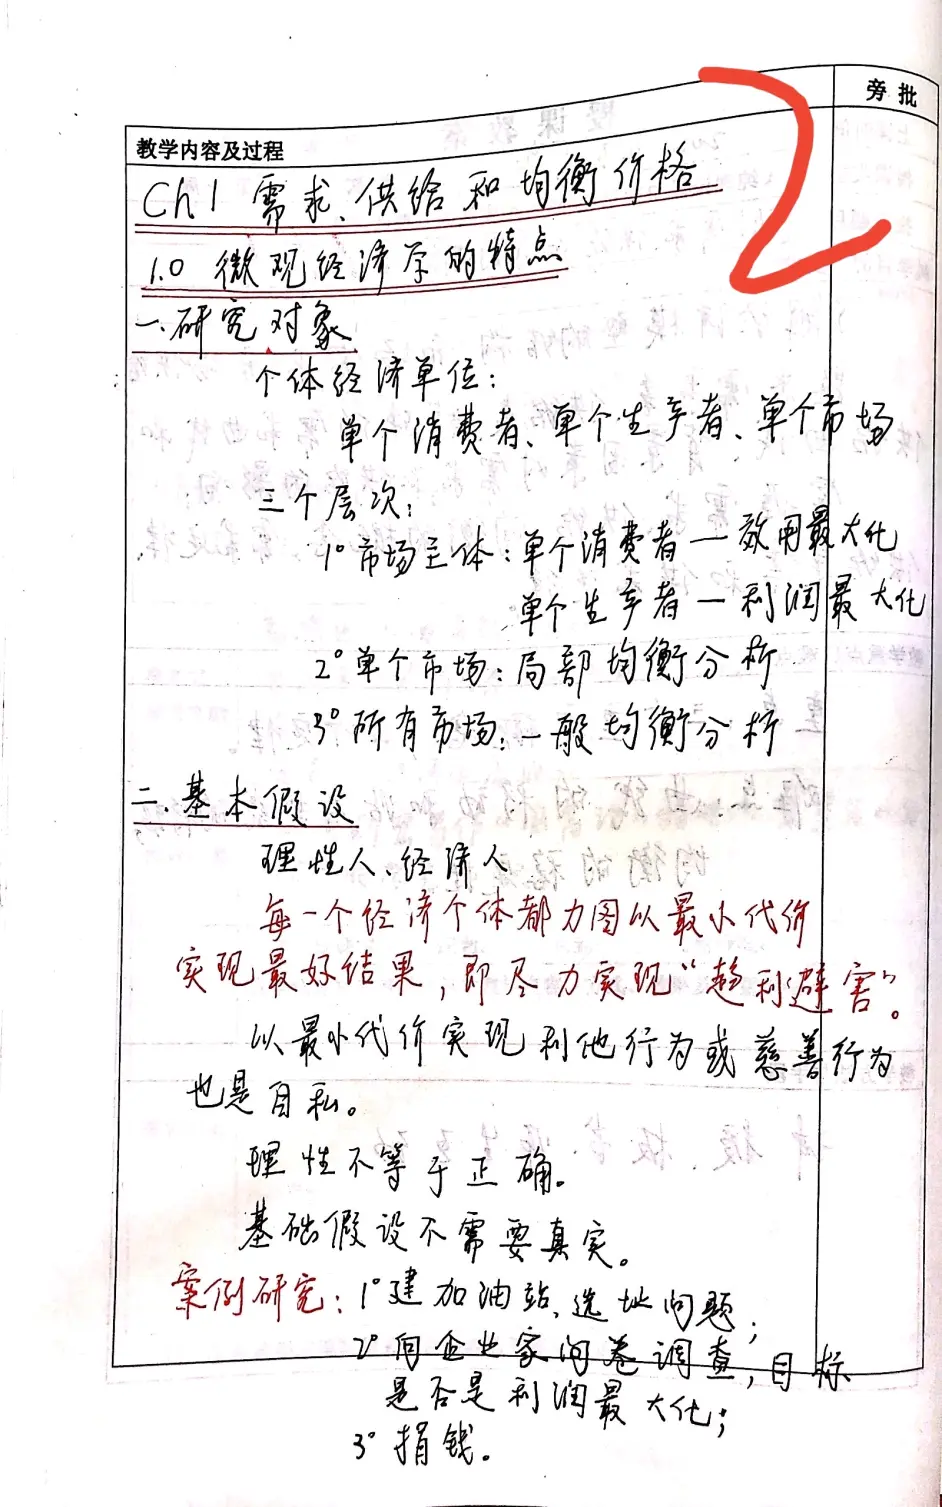 2
旁批
教学内容及过程
Ch1 需求、供给和均衡价格
1.0 微观经济学的特点
一.研究对象
个体经济单位:
单个消费者、单个生产者、单个市场
三个层次:
1°市场主体:单个消费者—效用最大化
单个生产者—利润最大化
2°单个市场:局部均衡分析
3°所有市场:一般均衡分析
二.基本假设
理性人、经济人
每一个经济个体都力图以最小代价
实现最好结果,即尽力实现“趋利避害”。
以最小代价实现利他行为或慈善行为
也是自私。
理性不等于正确。
基础假设不需要真实。
案例研究:1°建加油站、选址问题;
2°向企业家问卷调查,目标
是否是利润最大化;
3°捐钱。